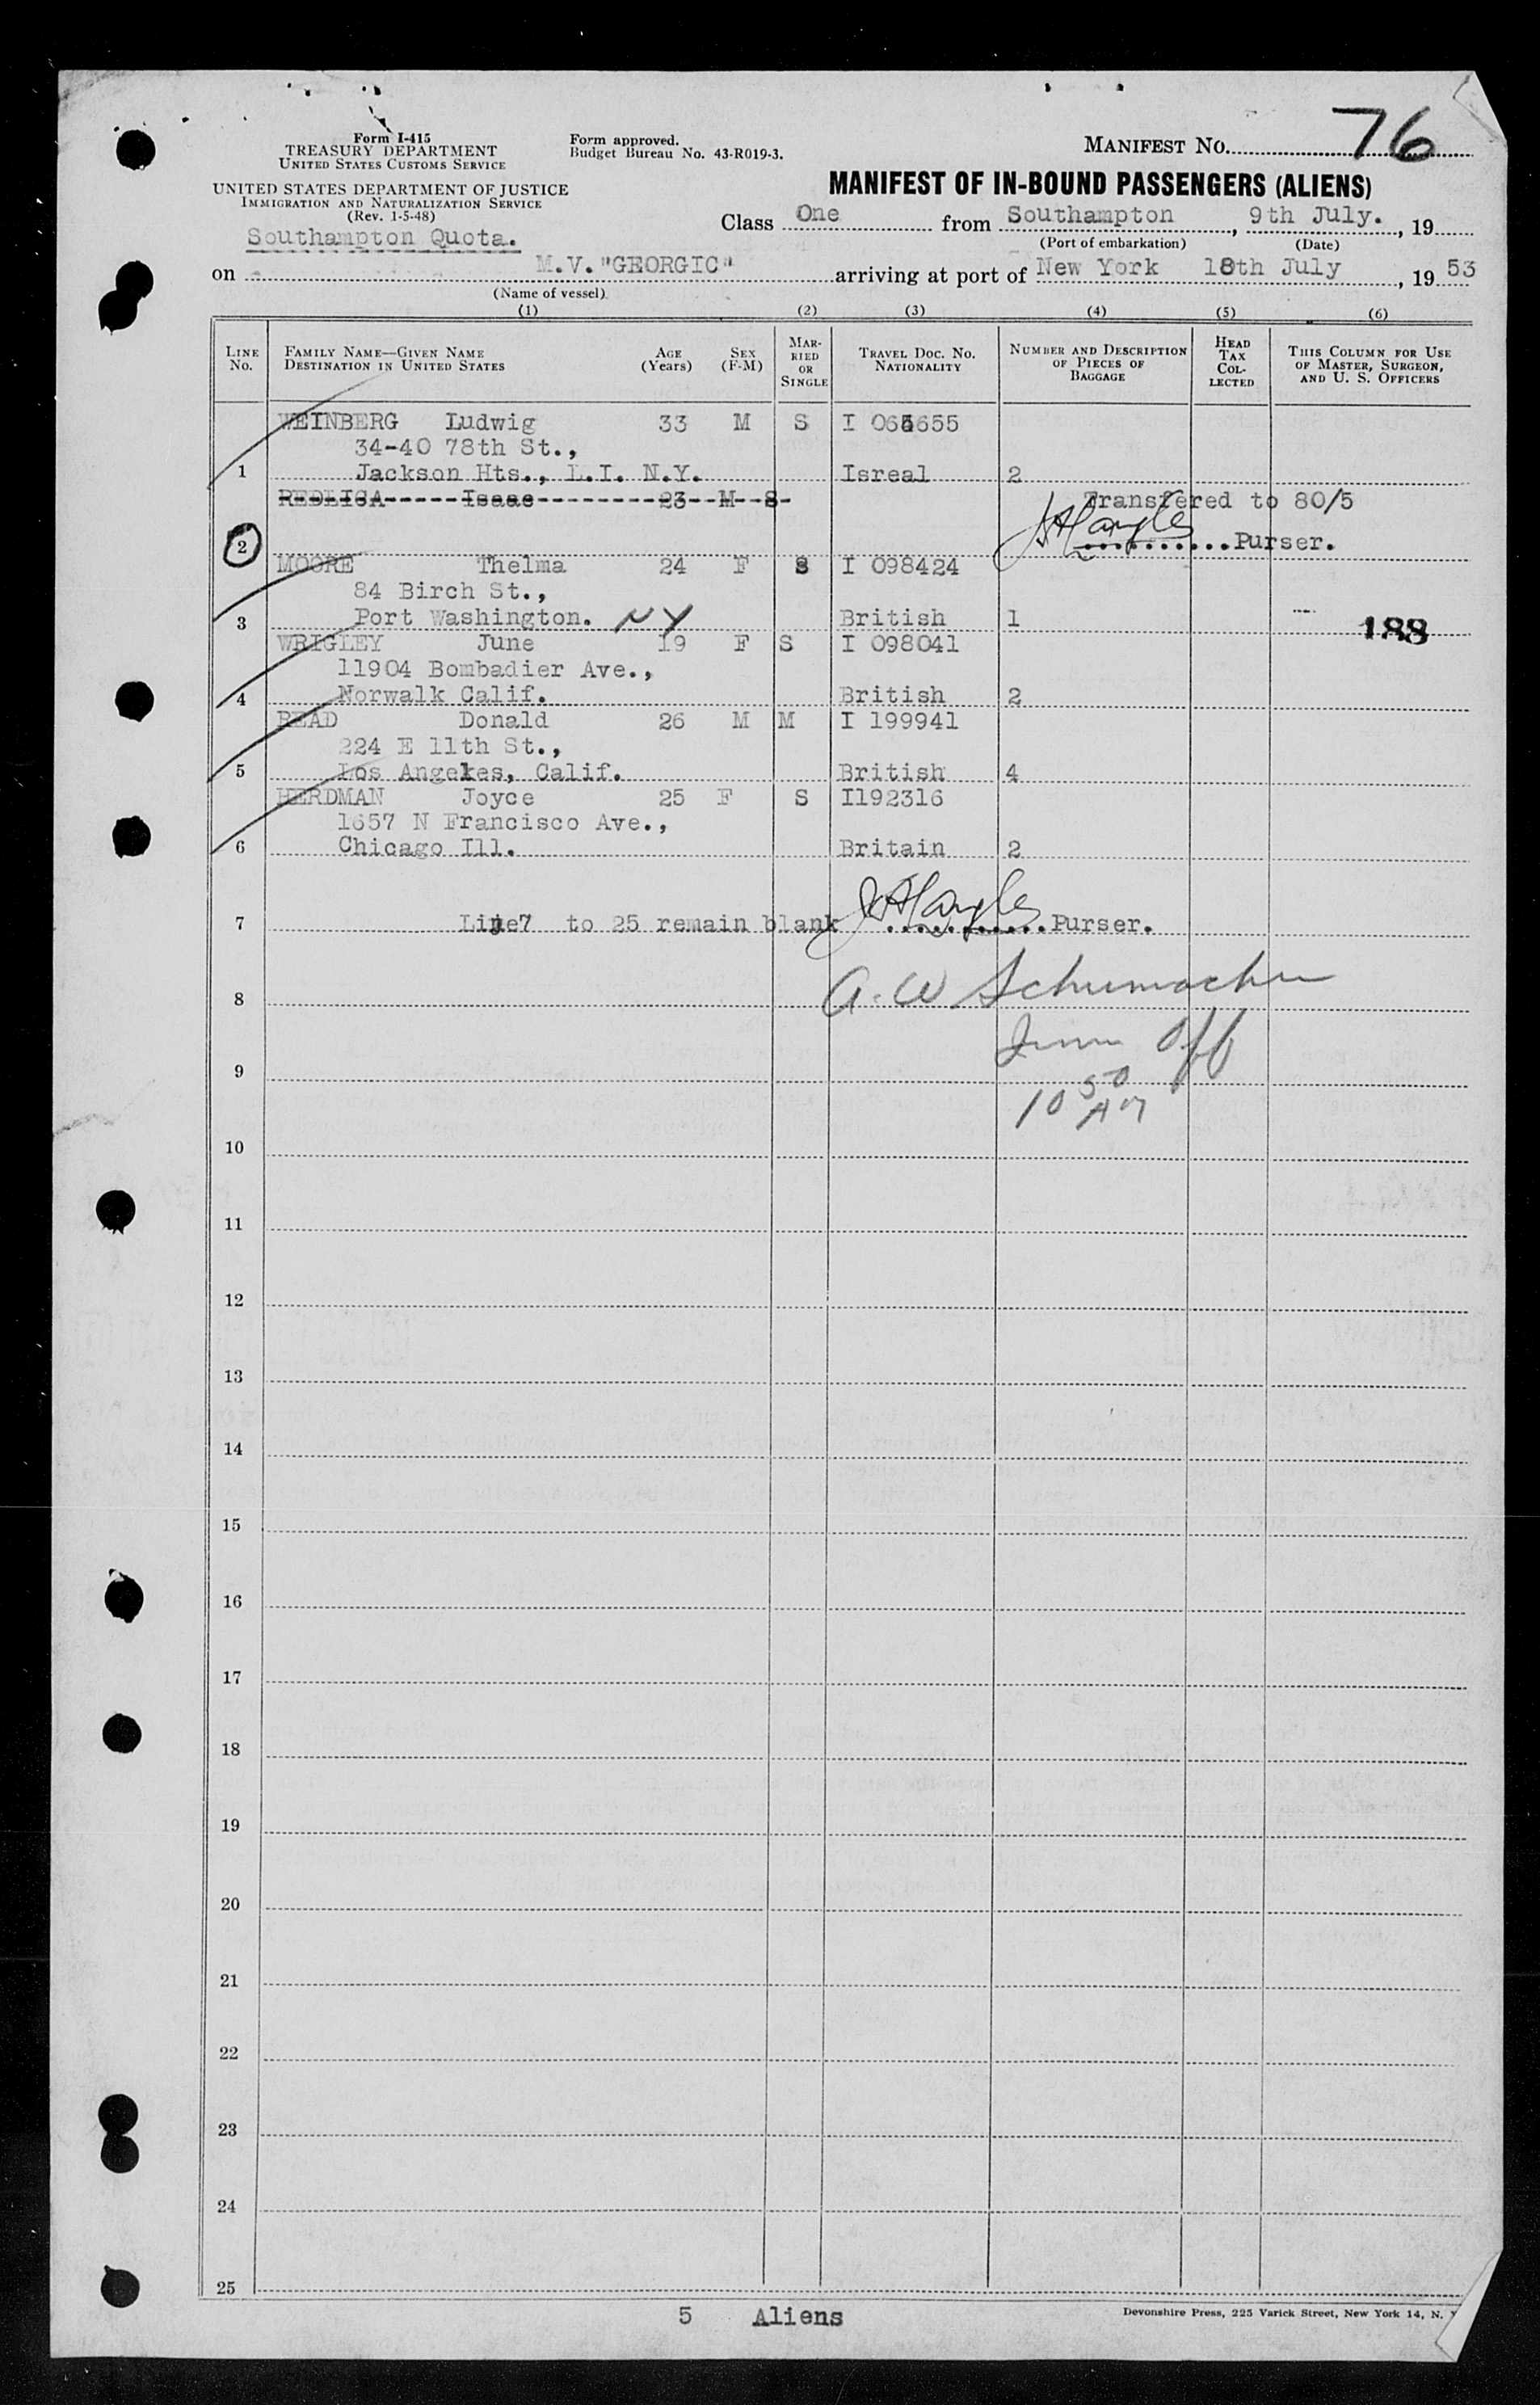 Form I-415
TREASURY DEPARTMENT
UNITED STATES CUSTOMS SERVICE
Form approved.
Budget Bureau No. 43-R019-3.
MANIFEST NO. 76
UNITED STATES DEPARTMENT OF JUSTICE
IMMIGRATION AND NATURALIZATION SERVICE
(Rev. 1-5-48)
MANIFEST OF IN-BOUND PASSENGERS (ALIENS)
Southampton Quota.
Class One from Southampton, 9th July., 19
(Port of embarkation) (Date)
on M.V."GEORGIC" arriving at port of New York 18th July, 19 53
(Name of vessel)
(1) (2) (3) (4) (5) (6)
LINE No. FAMILY NAME—GIVEN NAME DESTINATION IN UNITED STATES AGE (Years) SEX (F-M) MARRIED OR SINGLE TRAVEL DOC. NO. NATIONALITY NUMBER AND DESCRIPTION OF PIECES OF BAGGAGE HEAD TAX COLLECTED THIS COLUMN FOR USE OF MASTER, SURGEON, AND U. S. OFFICERS
WEINBERG Ludwig 33 M S I
34-40 78th St.,
1 Jackson Hts., L.I. N.Y. Isreal 2
REDLICA Isaac 23 M S Transfered to 80/5
2 Purser.
MOORE Thelma 24 F S I 098424
84 Birch St.,
3 Port Washington. NY British 1 188
WRIGLEY June 19 F S I 098041
11904 Bombadier Ave.,
4 Norwalk Calif. British 2
READ Donald 26 M M I 199941
224 E 11th St.,
5 Los Angeles, Calif. British 4
HERDMAN Joyce 25 F S I192316
1657 N Francisco Ave.,
6 Chicago Ill. Britain 2
7 Line7 to 25 remain blank Purser.
8 A. W Schumacher
9 Imm Off
10 50 AM
10
11
12
13
14
15
16
17
18
19
20
21
22
23
24
25
5 Aliens
Devonshire Press, 225 Varick Street, New York 14, N.